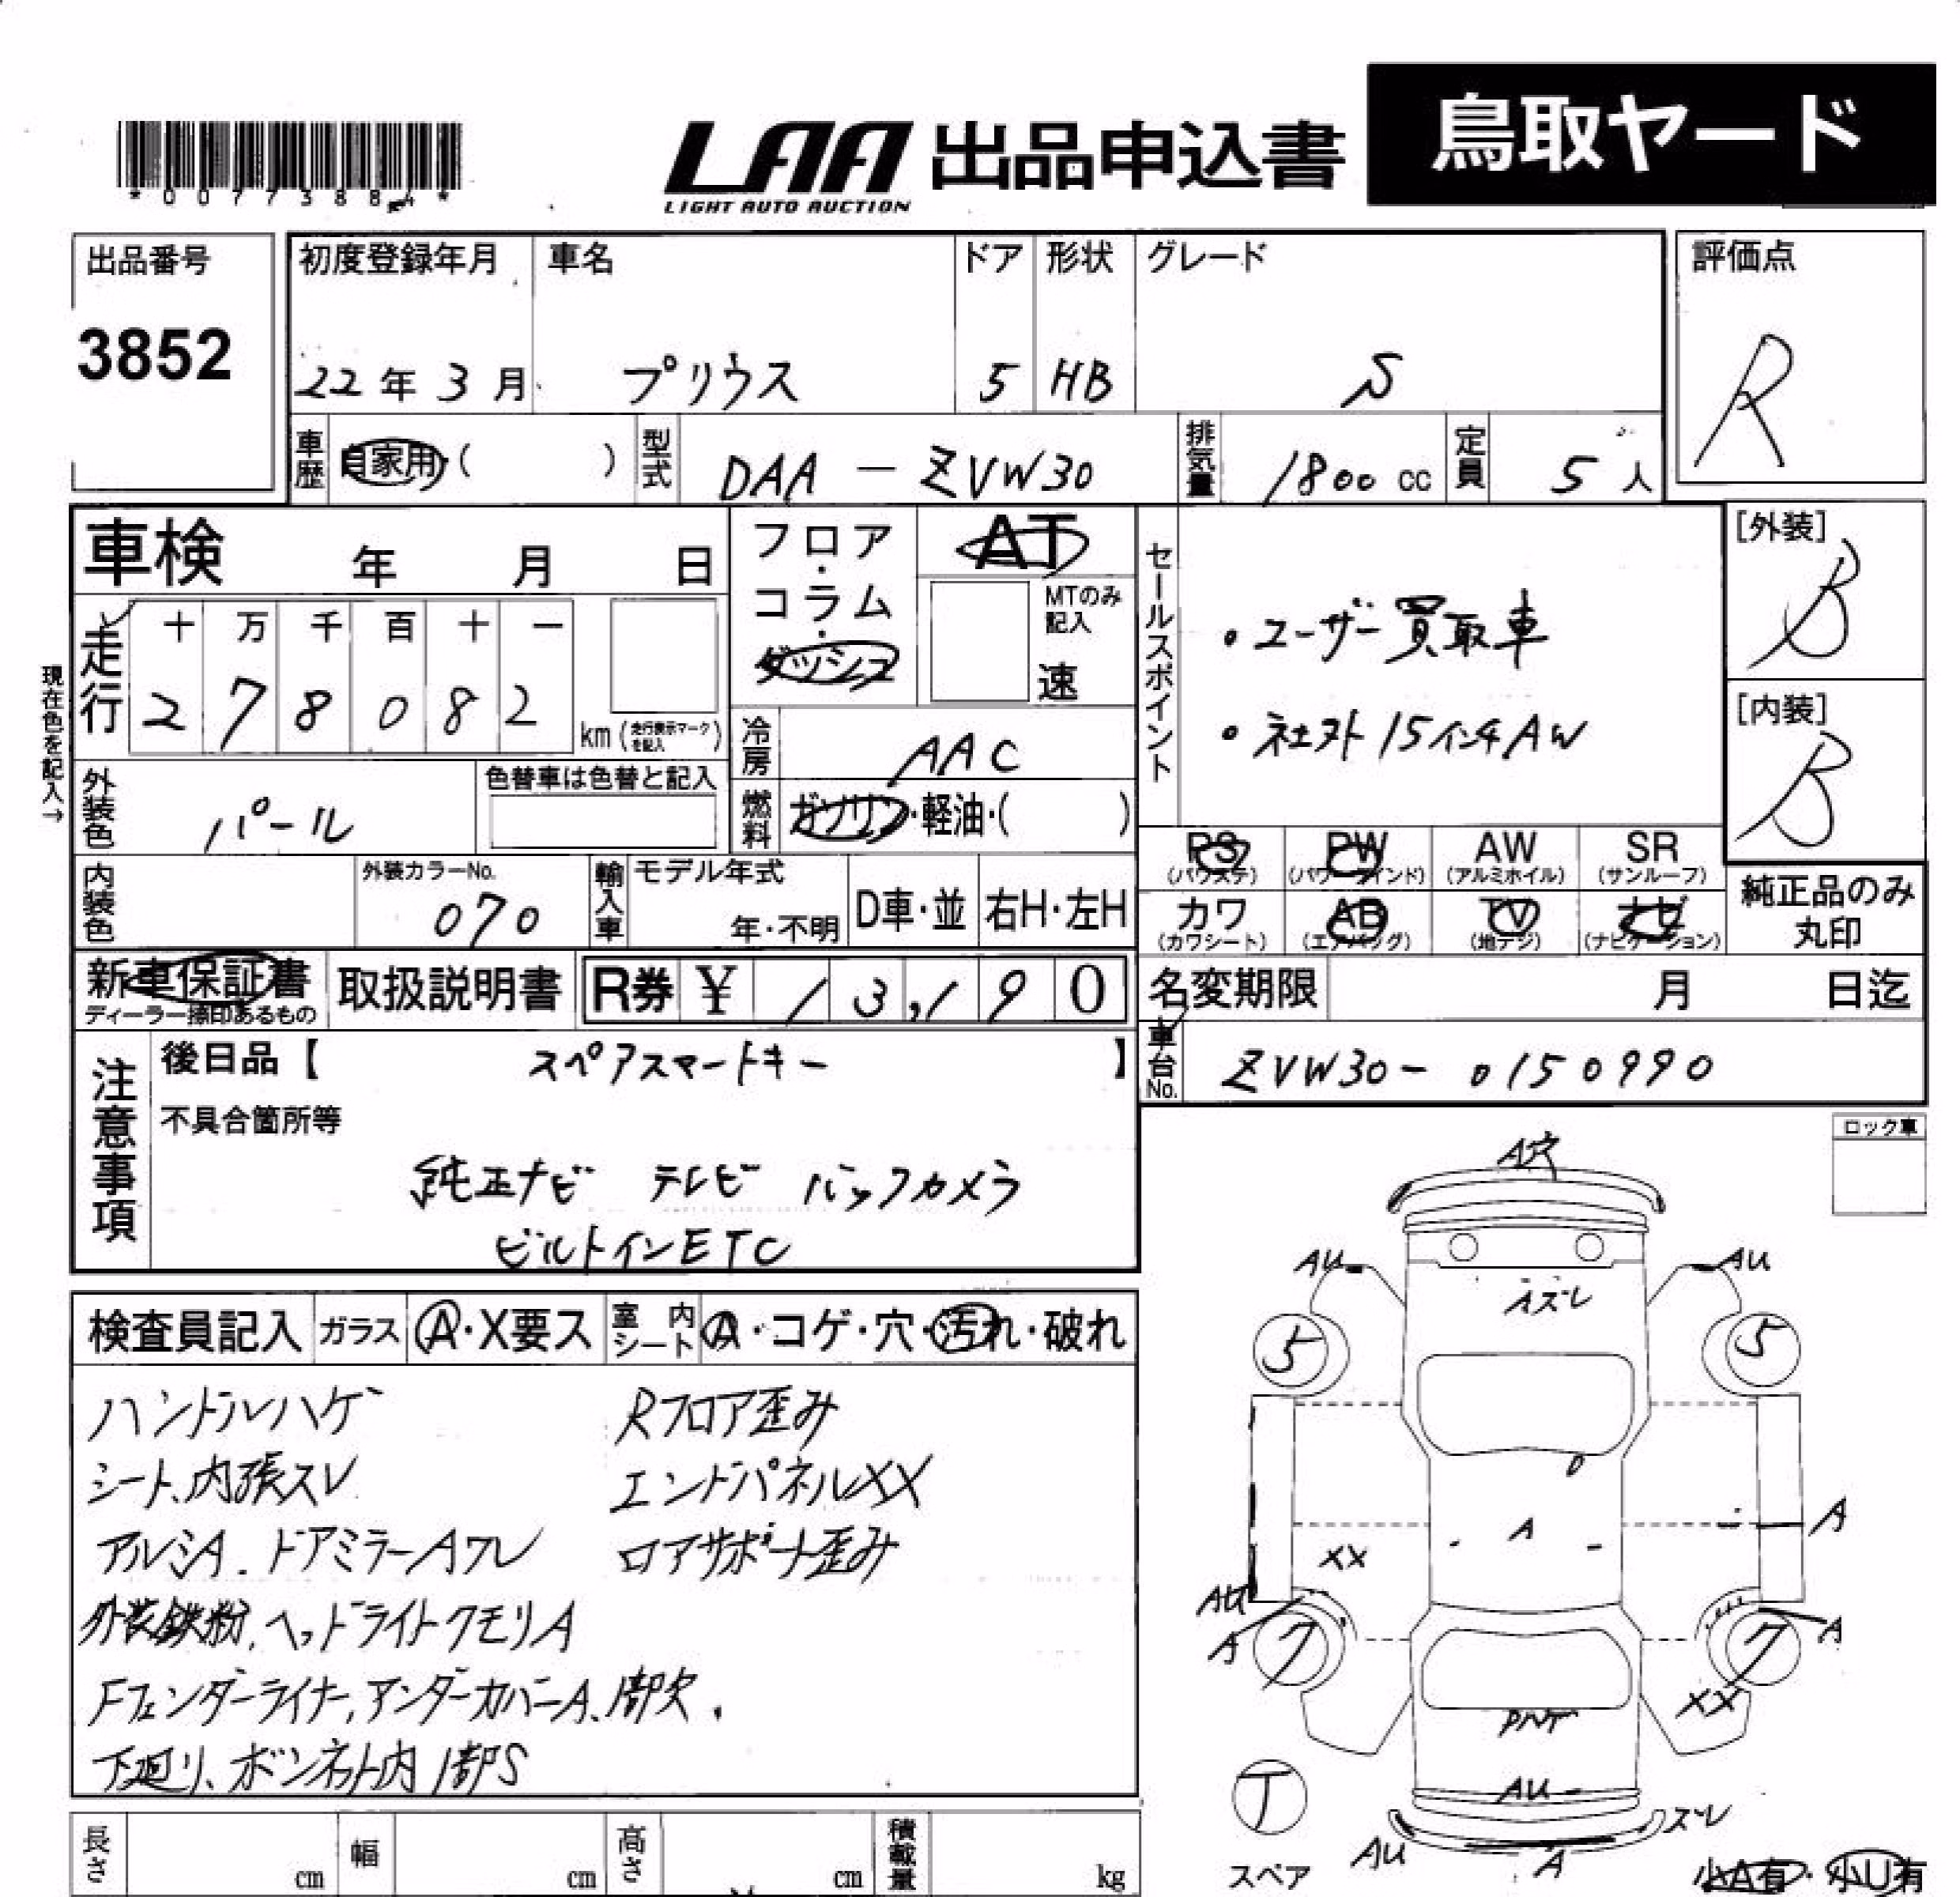 鳥取ヤード
LAA 出品申込書
LIGHT AUTO AUCTION
*0077388 4*
出品番号 初度登録年月 車名 ドア 形状 グレード 評価点
3852 22年3月 プリウス 5 HB S R
車歴 自家用・( ) 型式 DAA-ZVW30 排気量 1800cc 定員 5人
車検 年 月 日
フロア・コラム・ダッシュ
AT
MTのみ記入
速
現在色を記入→
走行 十 万 千 百 十 一
2 7 8 0 8 2 km (走行表示マークを記入)
冷房 AAC
燃料 ガソリン・軽油・( )
セールスポイント
・ユーザー買取車
・社外15インチAW
[外装]
B
[内装]
B
外装色 パール 色替車は色替と記入
内装色 外装カラーNo. 070
輸入車 モデル年式 年・不明 D車・並 右H・左H
PS PW AW SR
(パワステ) (パワーウインド) (アルミホイル) (サンルーフ)
カワ AB TV ナビ
(カワシート) (エアバッグ) (地デジ) (ナビゲーション)
純正品のみ丸印
新車保証書 取扱説明書 R券 ¥ 13,190
ディーラー捺印あるもの
名変期限 月 日迄
車台No. ZVW30-0150990
注意事項
後日品【 スペアスマートキー 】
不具合箇所等
純正ナビ テレビ バックカメラ
ビルトインETC
ロック車
検査員記入 ガラス A・X要ス 室内シート A・コゲ・穴・汚れ・破れ
ハンドルハゲ Rフロア歪み
シート、内張スレ エンドパネルXX
アルミA. ドアミラーAワレ ロアサポート歪み
外装鉄粉、ヘッドライトクモリA
Fフェンダーライナー,アンダーカバーA、1部欠.
下廻り、ボンネット内1部S
A穴
AU AU
Aズレ
5 5
A A
XX
AU
A 7 7 A
XX
PNT
丁 AU
ズレ
AU A
スペア 小A有・小U有
長さ cm 幅 cm 高さ cm 積載量 kg